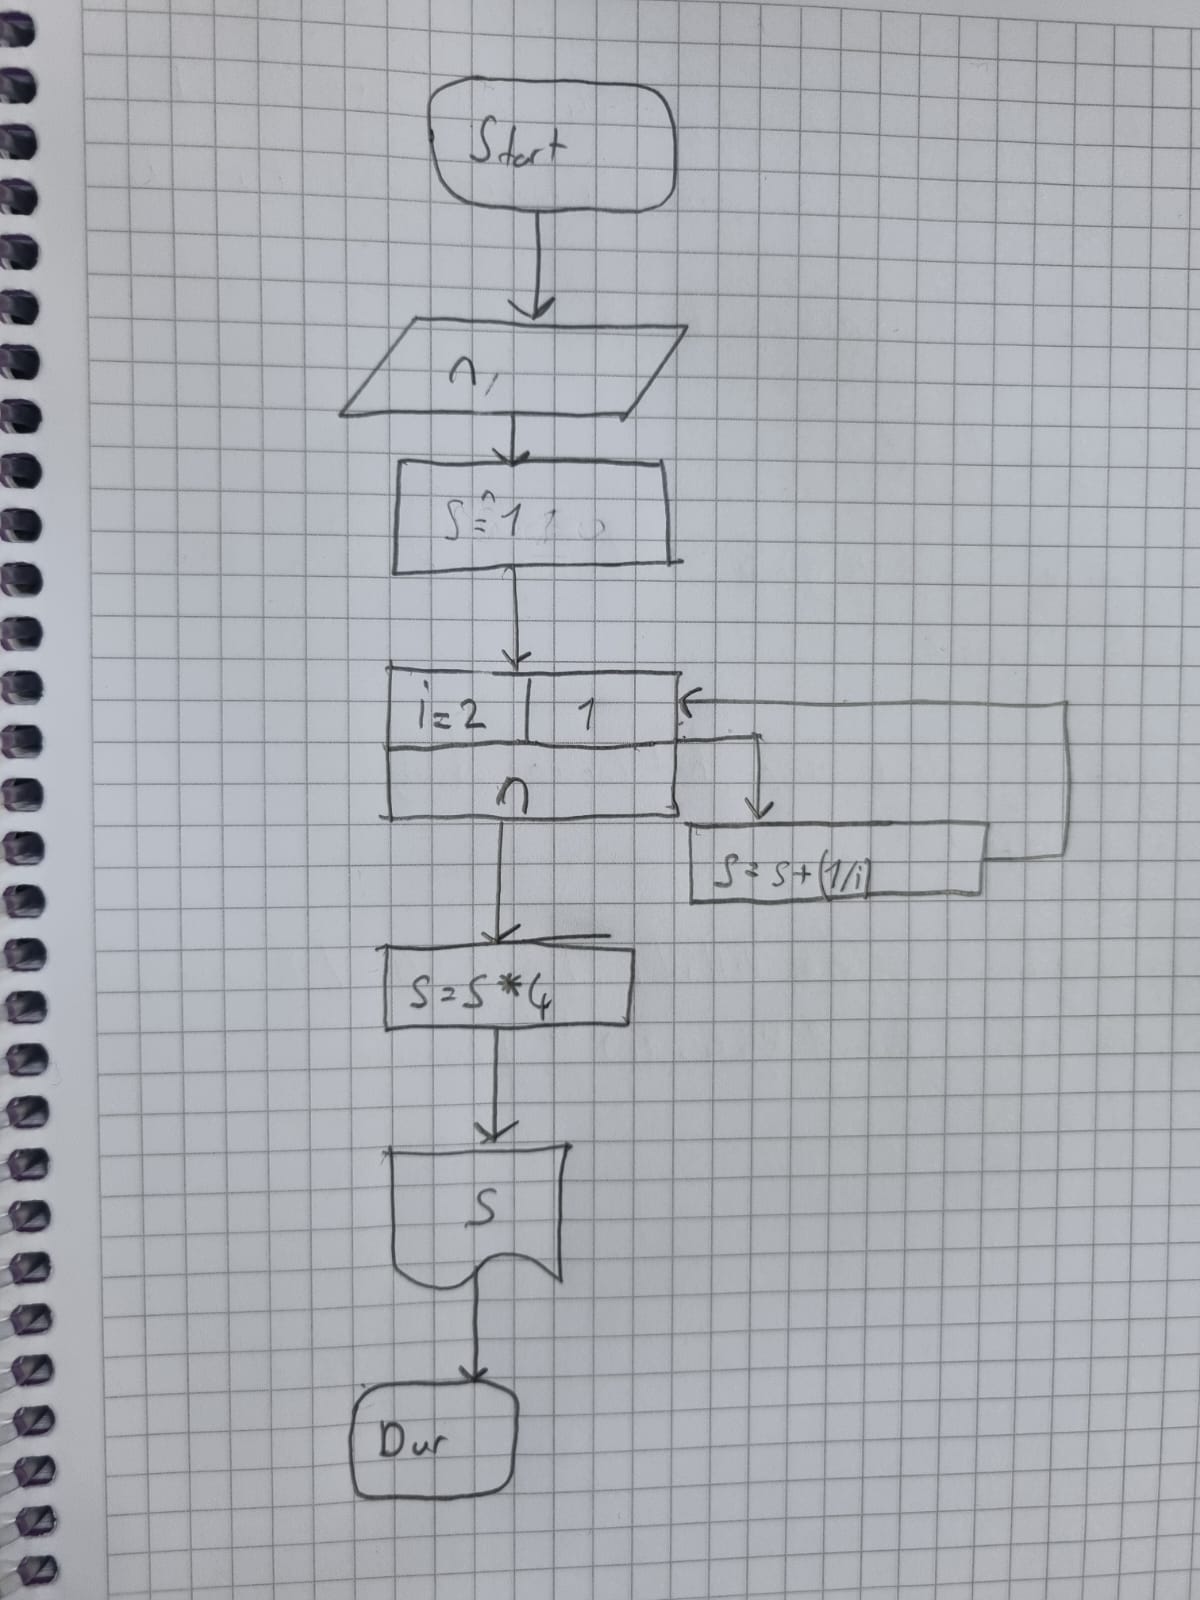 Start
n,
S=1
i=2 1
n
S=S+(1/i)
S=S*4
S
Dur